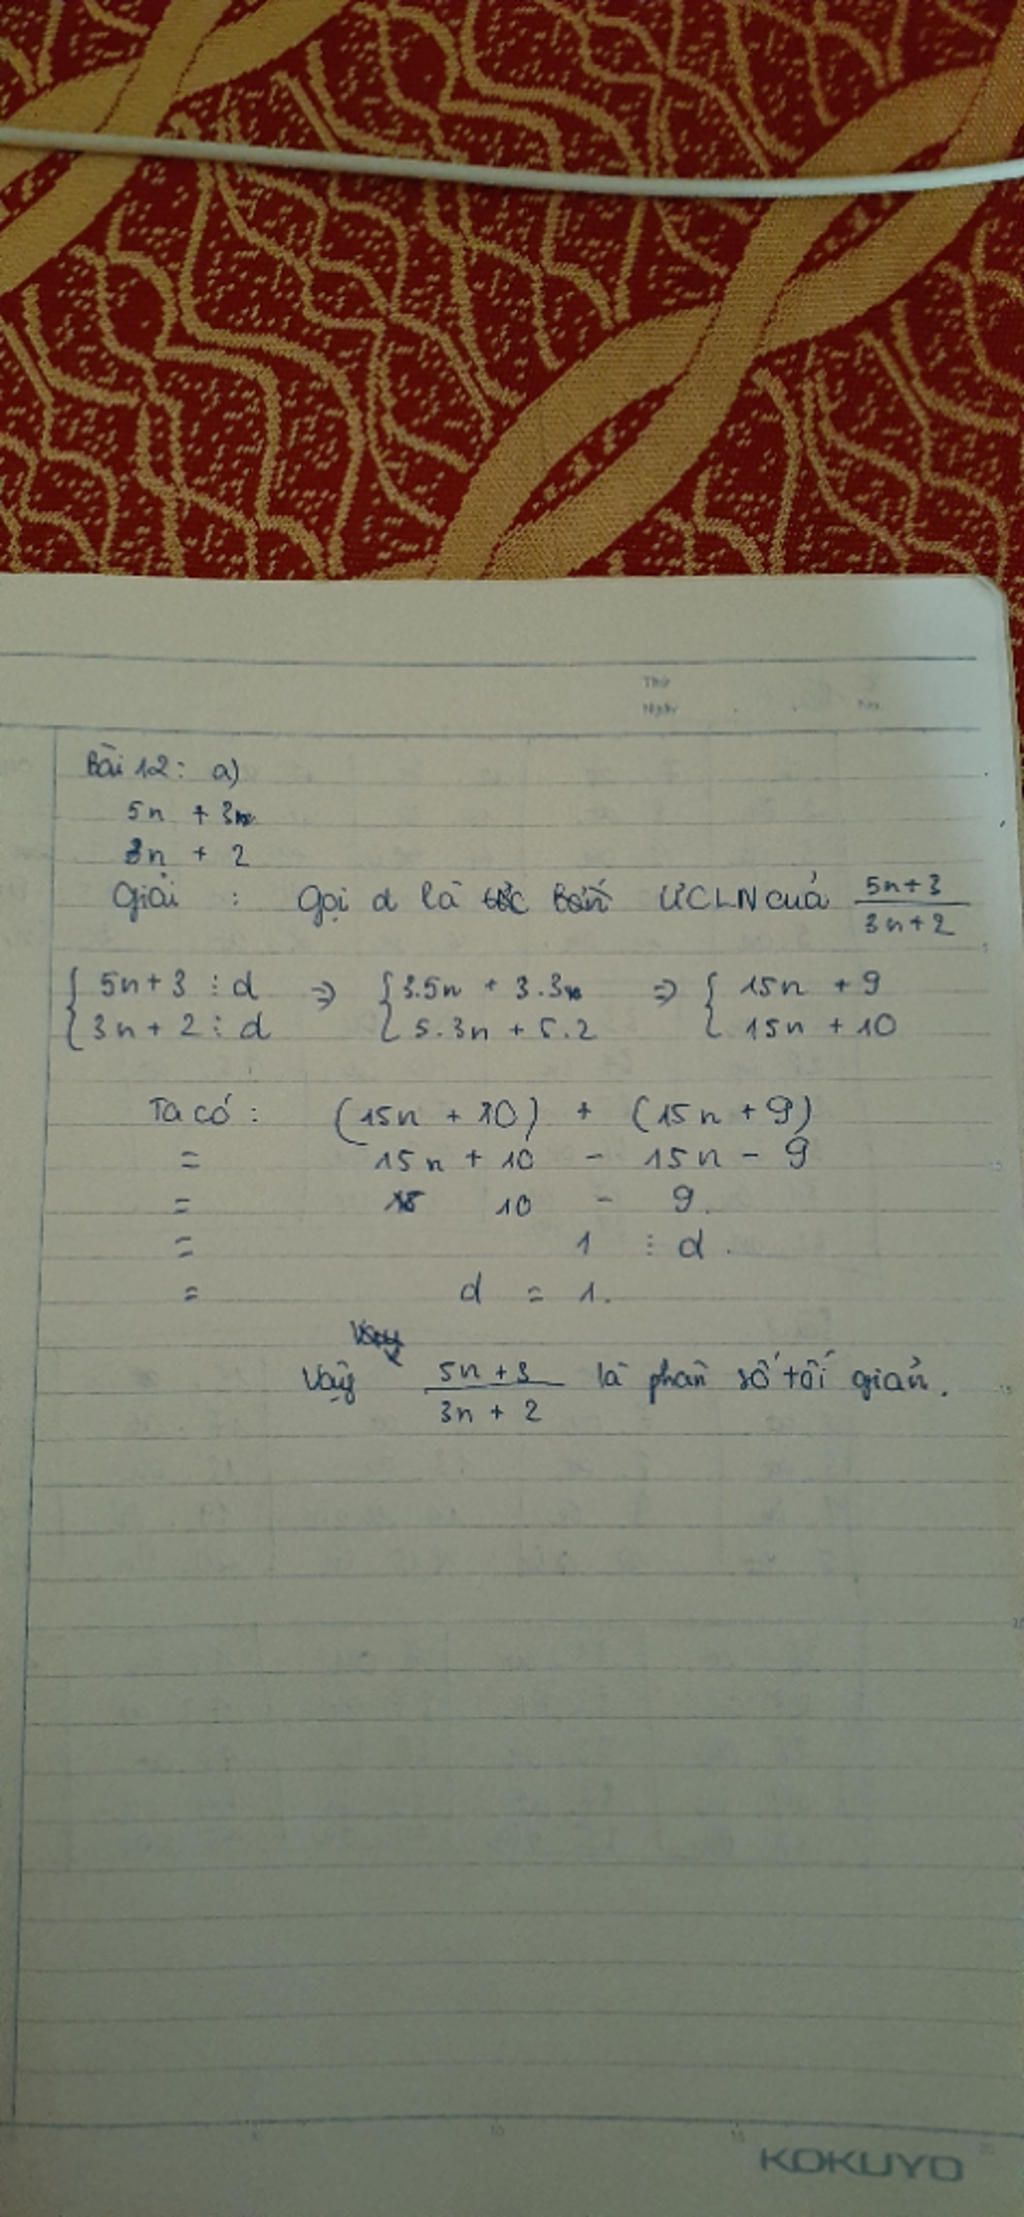 Thứ
Ngày
No.
Bài 12: a)
5n + 3
3n + 2
Giải : Gọi d là ƯCLN của 5n+3
3n+2
{ 5n+3 ⋮ d ⇒ { 3.5n + 3.3 ⇒ { 15n + 9
{ 3n+2 ⋮ d { 5.3n + 5.2 { 15n + 10
Ta có: (15n + 10) + (15n + 9)
= 15n + 10 - 15n - 9
= 10 - 9.
= 1 ⋮ d.
= d = 1.
Vậy 5n+3 là phân số tối giản.
3n + 2
KOKUYO